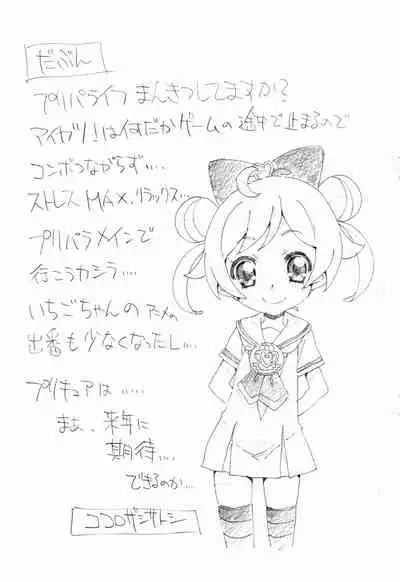 だぶん
プリパライフ まんきつしてますか?
アイカツ!は何だかゲームの途中で止まるので
コンボつながらず....
ストレスMAX.リラックス...
プリパラメインで
行こうカシラ....
いちごちゃんの アニメの
出番も少なくなったし...
プリキュアは .....
まぁ、来年に
期待....
できるのか...
ココロザシサトシ